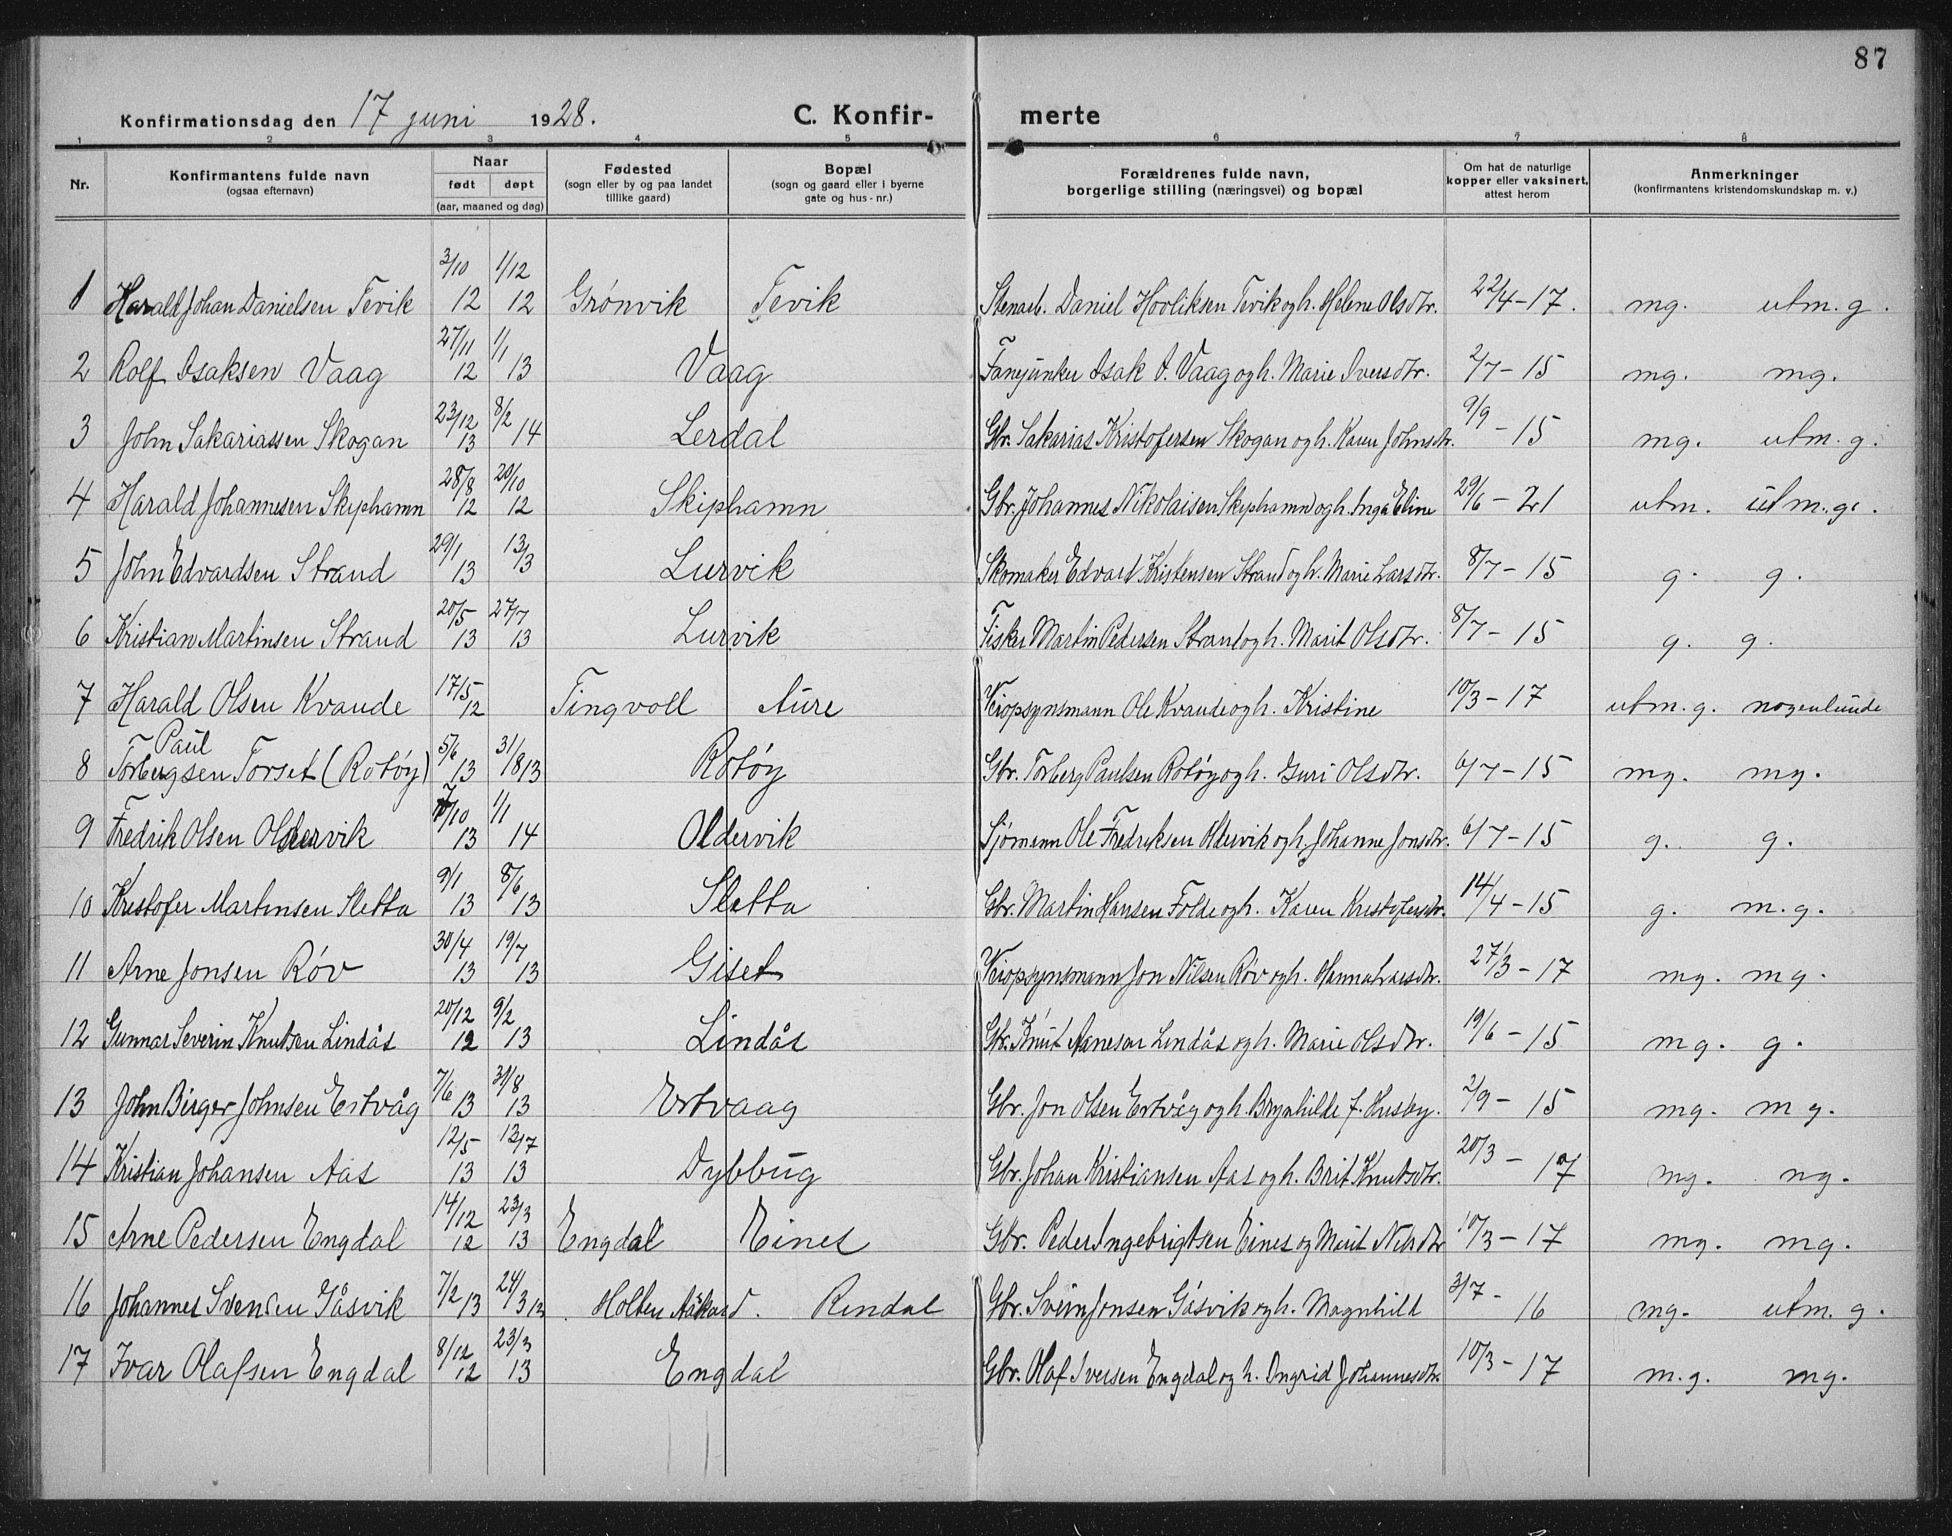 87
Konfirmationsdag den 17 juni 1928. C. Konfir- merte
1 2 3 4 5 6 7 8
Nr. Konfirmantens fulde navn (ogsaa efternavn) Naar født døpt (aar, maaned og dag) Fødested (sogn eller by og paa landet tillike gaard) Bopæl (sogn og gaard eller i byerne gate og hus-nr.) Forældrenes fulde navn, borgerlige stilling (næringsvei) og bopæl Om hat de naturlige kopper eller vaksinert, attest herom Anmerkninger (konfirmantens kristendomskundskap m. v.)
1 Harald Johan Danielsen Tevik 3/10 12 1/12 12 Grønvik Tevik Stenarb. Daniel Hovliksen Tevik og h. Helene Olsdtr. 22/4-17. mg. utm. g.
2 Rolf Isaksen Vaag 27/11 12 1/1 13 Vaag Fanejunker Isak I. Vaag og h. Marie Iversdtr. 2/7-15 mg. mg.
3 John Sakariassen Skogan 23/12 13 8/2 14 Lerdal Gbr. Sakarias Kristofersen Skogan og h. Karen Johnsdtr. 9/9-15 mg. utm. g.
4 Harald Johannesen Skiphamn 28/8 12 20/10 12 Skiphamn Gbr. Johannes Nikolaisen Skiphamn og h. Inga Eline 29/6-21 utm. utm. g.
5 John Edvardsen Strand 29/1 13 13/3 Lurvik Skomaker Edvard Kristensen Strand og h. Marie Larsdtr. 8/7-15 g. g.
6 Kristian Martinsen Strand 20/5 13 27/7 13 Lurvik Fisker Martin Pedersen Strand og h. Marit Olsdtr. 8/7-15 g. g.
7 Harald Olsen Kvande 17/5 12 Tingvoll Aure Veiopsynsmann Ole Kvande og h. Kristine 10/3-17 utm. g. nogenlunde
8 Paul Torbergsen Torset (Rotøy) 5/6 13 31/8 13 Rotøy Gbr. Torberg Paulsen Rotøy og h. Guri Olsdtr. 6/7-15 mg. mg.
9 Fredrik Olsen Oldervik 7/10 13 1/1 14 Oldervik Sjømann Ole Fredriksen Oldervik og h. Johanne Jonsdtr. 6/7-15 g. g.
10 Kristofer Martinsen Sletta 9/1 13 8/6 13 Sletta Gbr. Martin Hansen Folde og h. Karen Kristofersdtr. 14/4-15 g. m.g.
11 Arne Jonsen Røv 30/4 13 19/7 13 Giset Veiopsynsmann Jon Nilsen Røv og h. Hanna Larsdtr. 27/3-17 mg. mg.
12 Gunnar Severin Knutsen Lindås 20/12 12 9/2 13 Lindås Gbr. Knut Aanesen Lindås og h. Marie Olsdtr. 19/6-15 mg. g.
13 John Birger Johnsen Ertvåg 7/6 13 31/8 13 Ertvaag Gbr. Jon Olsen Ertvåg og h. Brynhilde f. Husby. 2/9-15 mg. mg.
14 Kristian Johansen Aas 12/5 13 13/7 13 Dybbug Gbr. Johan Kristiansen Aas og h. Brit Knutsdtr. 20/3-17 mg. ng.
15 Arne Pedersen Engdal 14/12 12 23/3 13 Engdal Eines Gbr. Peder Ingebrigtsen Eines og Marit Nilsdtr 10/3-17 mg. mg.
16 Johannes Svensen Gåsvik 7/2 13 24/3 13 Holten Aakard. Rindal Gbr. Svein Jonsen Gåsvik og h. Magnhild 3/7-16 mg. utm. g.
17 Ivar Olafsen Engdal 8/12 12 23/3 13 Engdal Gbr. Olaf Iversen Engdal og h. Ingrid Johannesdtr. 10/3-17 m.g. mg.